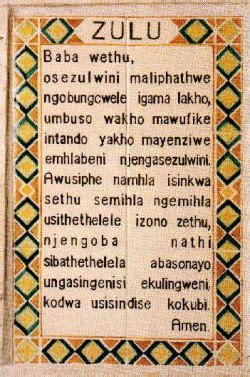 ZULU
Baba wethu,
osezulwini maliphathwe
ngobungcwele igama lakho,
umbuso wakho mawufike
intando yakho mayenziwe
emhlabeni njengasezulwini.
Awusiphe namhla isinkwa
sethu semihla ngemihla
usithethelele izono zethu,
njengoba nathi
sibathethelela abasonayo
ungasingenisi ekulingweni,
kodwa usisindise kokubi.
Amen.